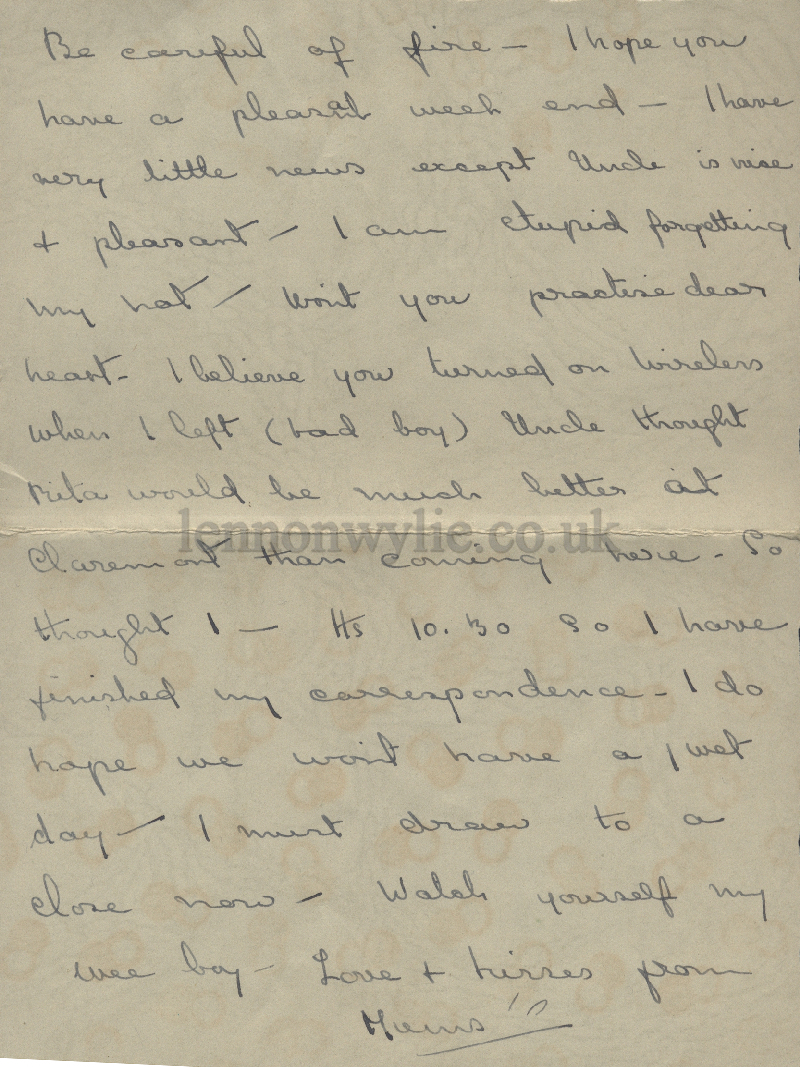 Be careful of fire — I hope you
have a pleasant week end — I have
very little news except Uncle is nice
+ pleasant — I am stupid forgetting
my hat — Won't you practise dear
heart - I believe you turned on wireless
when I left (bad boy) Uncle thought
Rita would be much better at
lennonwylie.co.uk
Claremont than coming here - So
thought I — Its 10.30 so I have
finished my correspondence - I do
hope we wont have a wet
day — I must draw to a
close now — Watch yourself my
wee boy - Love + kisses from
Mums